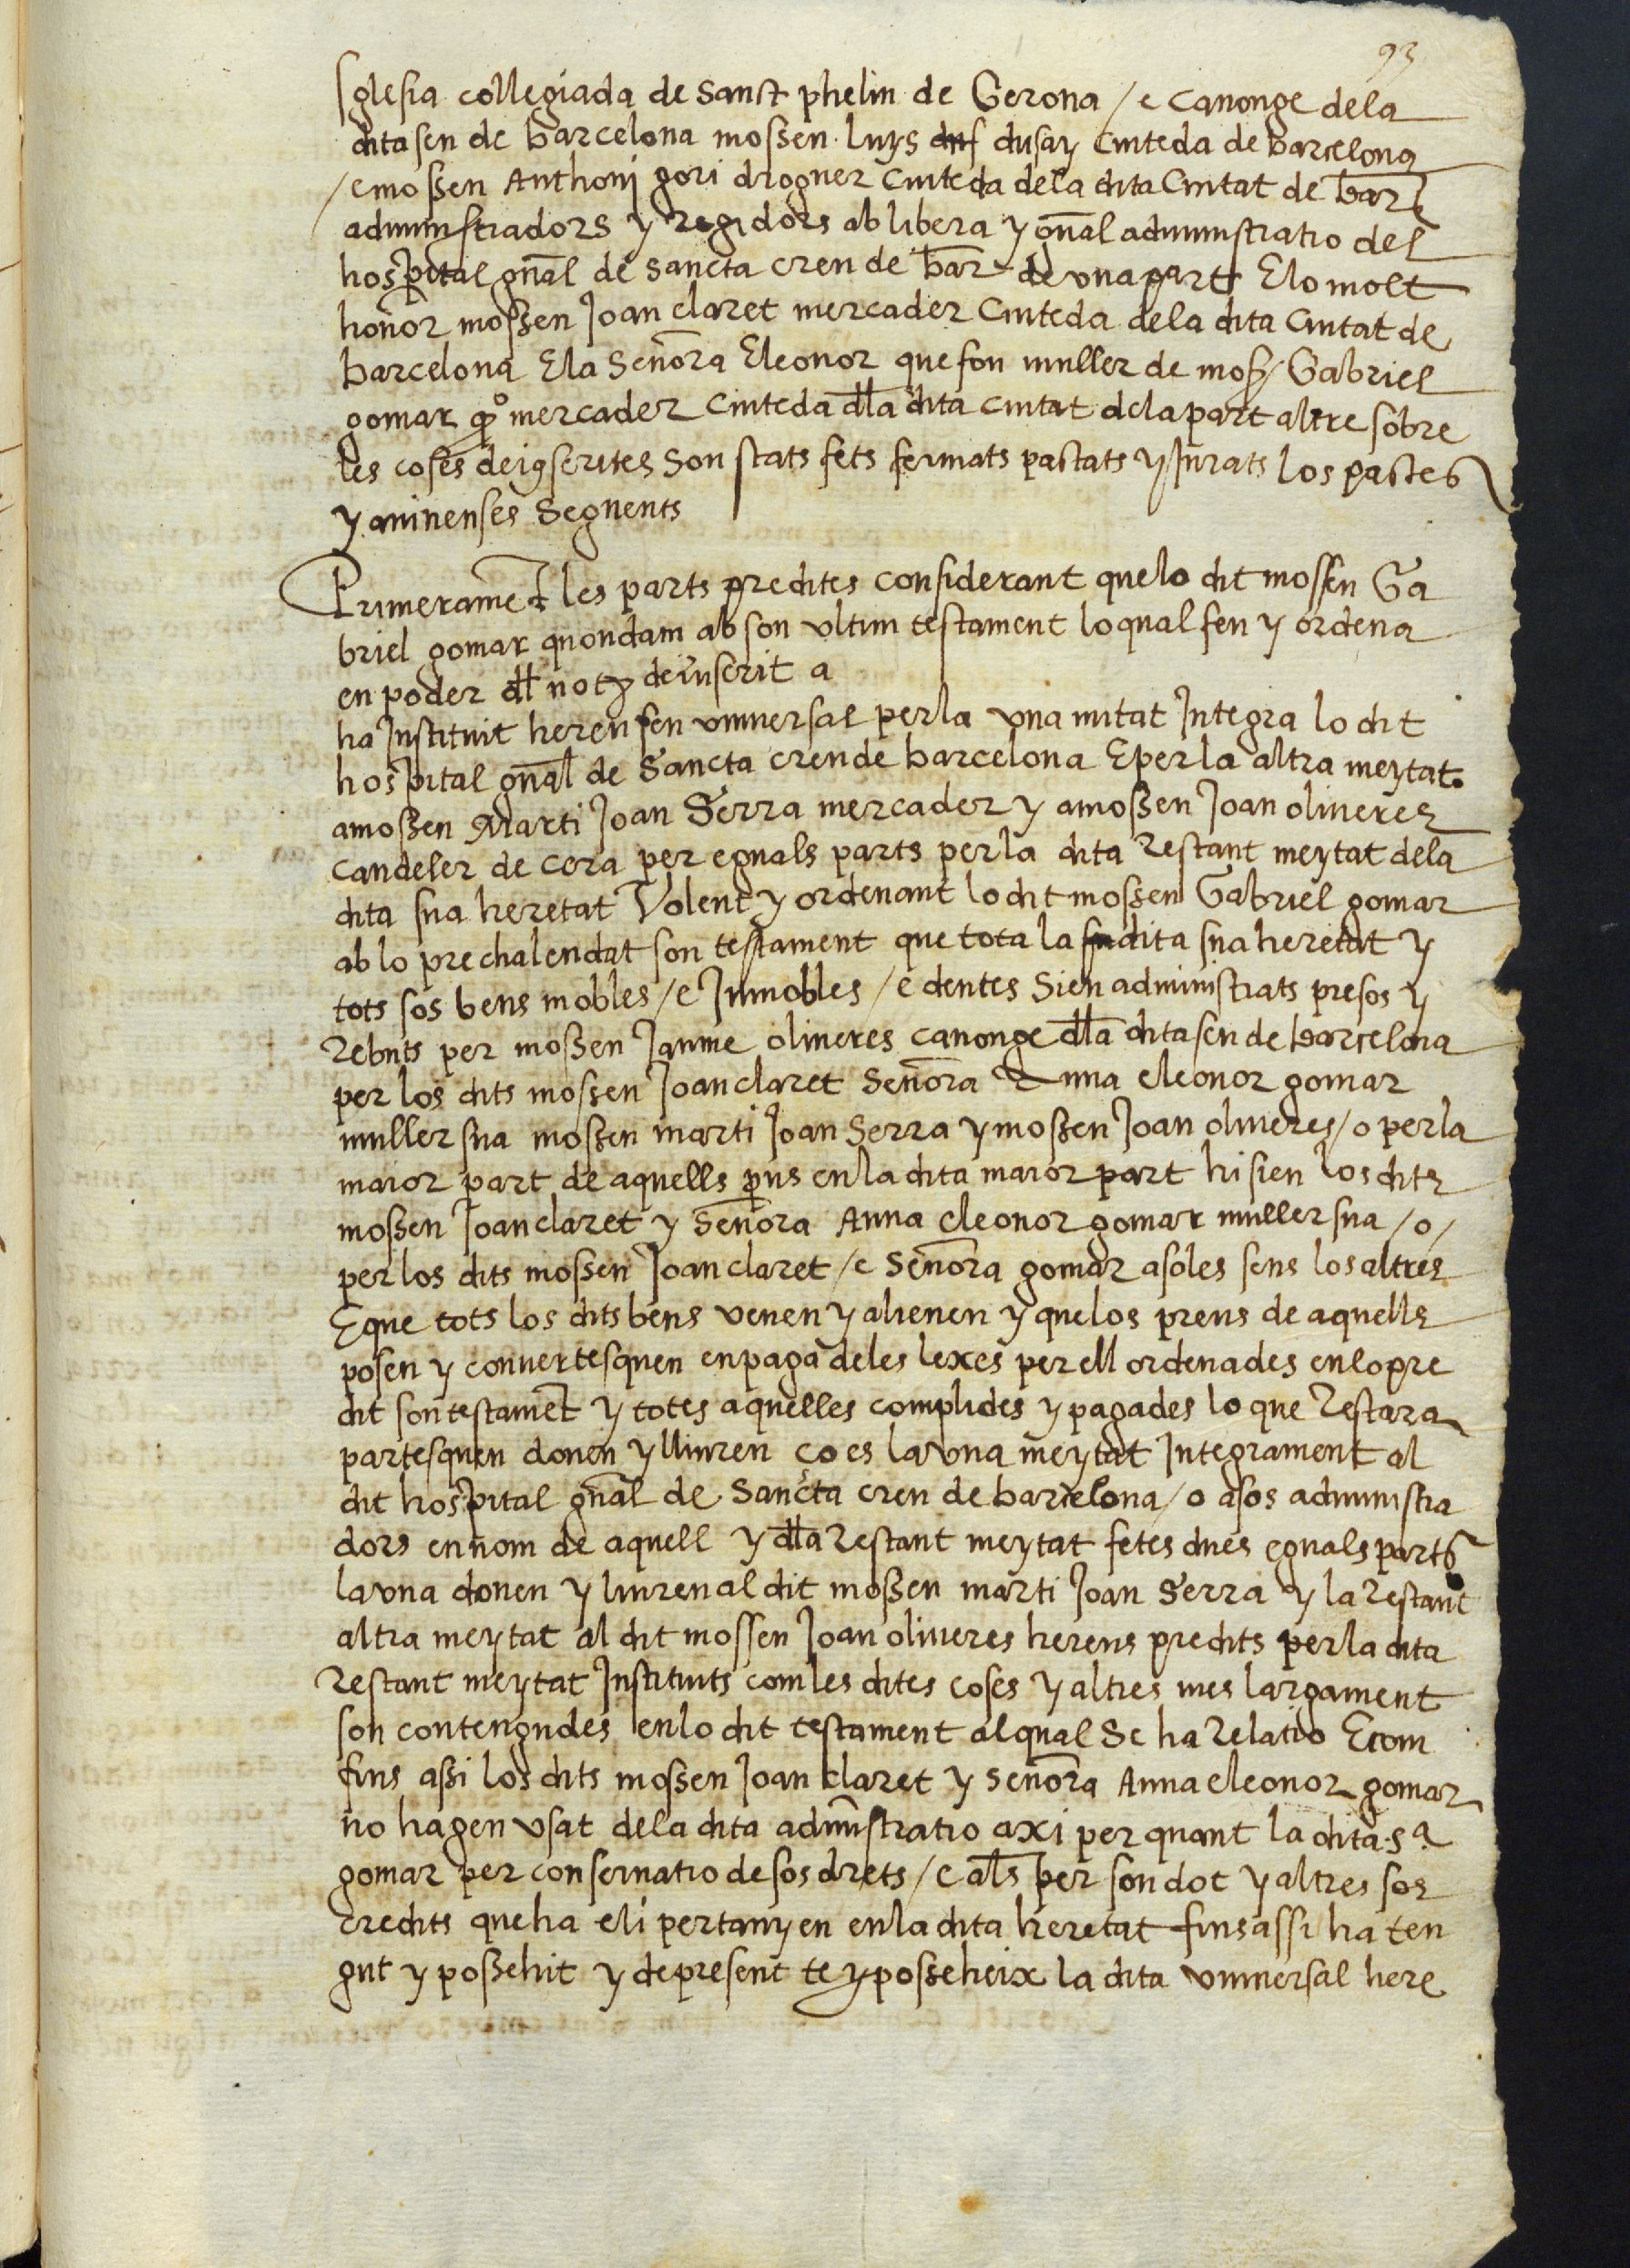 93
Iglesia collegiada de Sanct phelin de Gerona / e canonge dela
dita seu de barcelona mossen luys dusay Ciuteda de barcelona
/ e mossen Anthonj gori droguer Ciuteda dela dita Ciutat de bar^a
administradors y regidors ab libera y gñal administratio del
hospital gñal de sancta creu de bar^a de una part E lo molt
honor mossen Joan claret mercader Ciuteda dela dita Ciutat de
barcelona E la Señora Eleonor que fou muller de moss / Gabriel
gomar q^o mercader ciuteda dla dita ciutat dela part altre sobre
les coses deiq scrites Son stats fets fermats pactats y Jurats los pactes
y auinenses Seguents
Primerament les parts predites considerant que lo dit mossen Ga
briel gomar quondam ab son ultim testament lo qual feu y ordena
en poder dl not^e deiuscrit a
ha Instituit hereu seu uniuersal per la una mitat Integra lo dit
hospital gñal de Sancta creu de barcelona E per la altra meytat
a mossen Marti Joan Serra mercader y a mossen Joan oliueres
candeler de cera per eguals parts per la dita Restant meytat dela
dita sua heretat Volent y ordenant lo dit mossen Gabriel gomar
ab lo prechalendat son testament que tota la dita sua heretat y
tots sos bens mobles / e Inmobles / e deutes Sien administrats presos y
Rebuts per mossen Jaume oliueres canonge dla dita seu de barcelona
per los dits mossen Joan claret Señora Anna eleonor gomar
muller sua mossen marti Joan Serra y mossen Joan oliueres / o per la
maior part de aquells pus en la dita maior part hi sien los dits
mossen Joan claret y Señora Anna eleonor gomar muller sua / o /
per los dits mossen Joan claret / e Señora gomar a soles sens los altres
E que tots los dits bens venen y alienen y que los preus de aquells
posen y conuertesquen en paga deles lexes per ell ordenades en lo pre
dit son testament y totes aquelles complides y pagades lo que Restara
partesquen donen y lliuren ço es la una meytat Integrament al
dit hospital gñal de Sancta creu de barcelona / o a sos administra
dors en nom de aquell y dla Restant meytat fetes dues eguals parts
la una donen y liuren al dit mossen marti Joan Serra y la Restant
altra meytat al dit mossen Joan oliueres hereus predits per la dita
Restant meytat Instituits com les dites coses y altres mes largament
son contengudes en lo dit testament al qual Se ha Relatio E com
fins assi los dits mossen Joan claret y Señora Anna eleonor gomar
no hagen vsat dela dita admĩstratio axi per quant la dita S^a
gomar per conseruatio de sos drets / e als per son dot y altres sos
credits que ha e li pertanyen en la dita heretat fins assi ha ten
gut y possehit y de present te y posseheix la dita vniuersal here